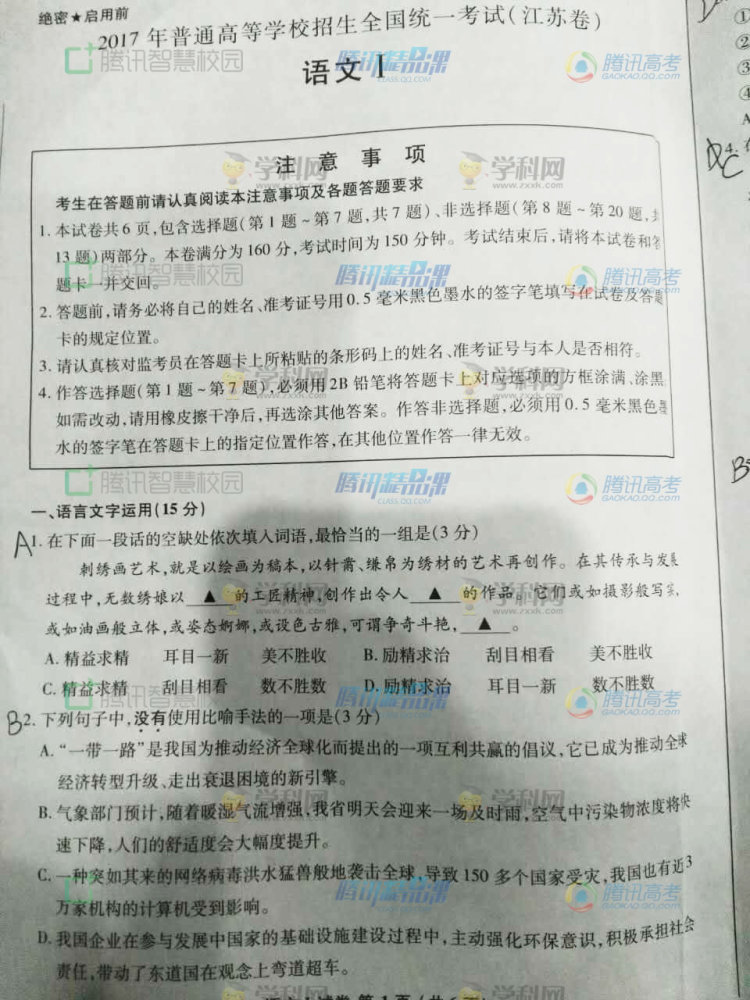 绝密★启用前
2017年普通高等学校招生全国统一考试(江苏卷)
语文Ⅰ
注意事项
考生在答题前请认真阅读本注意事项及各题答题要求
1.本试卷共6页,包含选择题(第1题~第7题,共7题)、非选择题(第8题~第20题,共
13题)两部分。本卷满分为160分,考试时间为150分钟。考试结束后,请将本试卷和答
题卡一并交回。
2.答题前,请务必将自己的姓名、准考证号用0.5毫米黑色墨水的签字笔填写在试卷及答题
卡的规定位置。
3.请认真核对监考员在答题卡上所粘贴的条形码上的姓名、准考证号与本人是否相符。
4.作答选择题(第1题~第7题),必须用2B铅笔将答题卡上对应选项的方框涂满、涂黑
如需改动,请用橡皮擦干净后,再选涂其他答案。作答非选择题,必须用0.5毫米黑色墨
水的签字笔在答题卡上的指定位置作答,在其他位置作答一律无效。
一、语言文字运用(15分)
A1.在下面一段话的空缺处依次填入词语,最恰当的一组是(3分)
刺绣画艺术,就是以绘画为稿本,以针黹、缣帛为绣材的艺术再创作。在其传承与发展
过程中,无数绣娘以▲的工匠精神,创作出令人▲的作品。它们或如摄影般写实,
或如油画般立体,或姿态婀娜,或设色古雅,可谓争奇斗艳,▲。
A.精益求精 耳目一新 美不胜收 B.励精求治 刮目相看 美不胜收
C.精益求精 刮目相看 数不胜数 D.励精求治 耳目一新 数不胜数
B2.下列句子中,没有使用比喻手法的一项是(3分)
A.“一带一路”是我国为推动经济全球化而提出的一项互利共赢的倡议,它已成为推动全球
经济转型升级、走出衰退困境的新引擎。
B.气象部门预计,随着暖湿气流增强,我省明天会迎来一场及时雨,空气中污染物浓度将快
速下降,人们的舒适度会大幅度提升。
C.一种突如其来的网络病毒洪水猛兽般地袭击全球,导致150多个国家受灾,我国也有近3
万家机构的计算机受到影响。
D.我国企业在参与发展中国家的基础设施建设过程中,主动强化环保意识,积极承担社会
责任,带动了东道国在观念上弯道超车。
①
②
③
④
A
4.
C
B
腾讯智慧校园
腾讯精品课
CLASS.QQ.COM
腾讯高考
GAOKAO.QQ.COM
学科网
www.zxxk.com